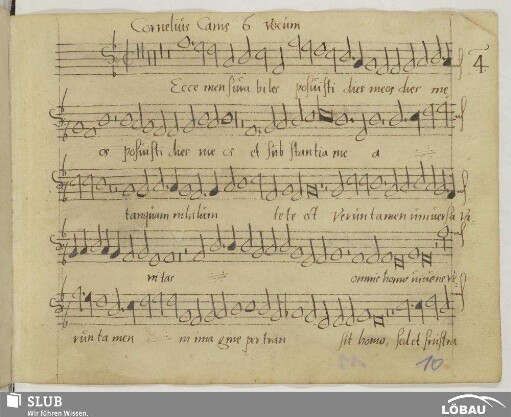 Cornelius Canis 6 vocum
4.
Ecce mensurabiles posuisti dies meos dies me
os posuisti dies me os et sub stantia me a
tanquam nihilum te te est Veruntamen universa va
nitas omnis homo vivens ve
runtamen in imagine pertran sit homo, sed et frustra
10
SLUB
Wir führen Wissen.
LÖBAU